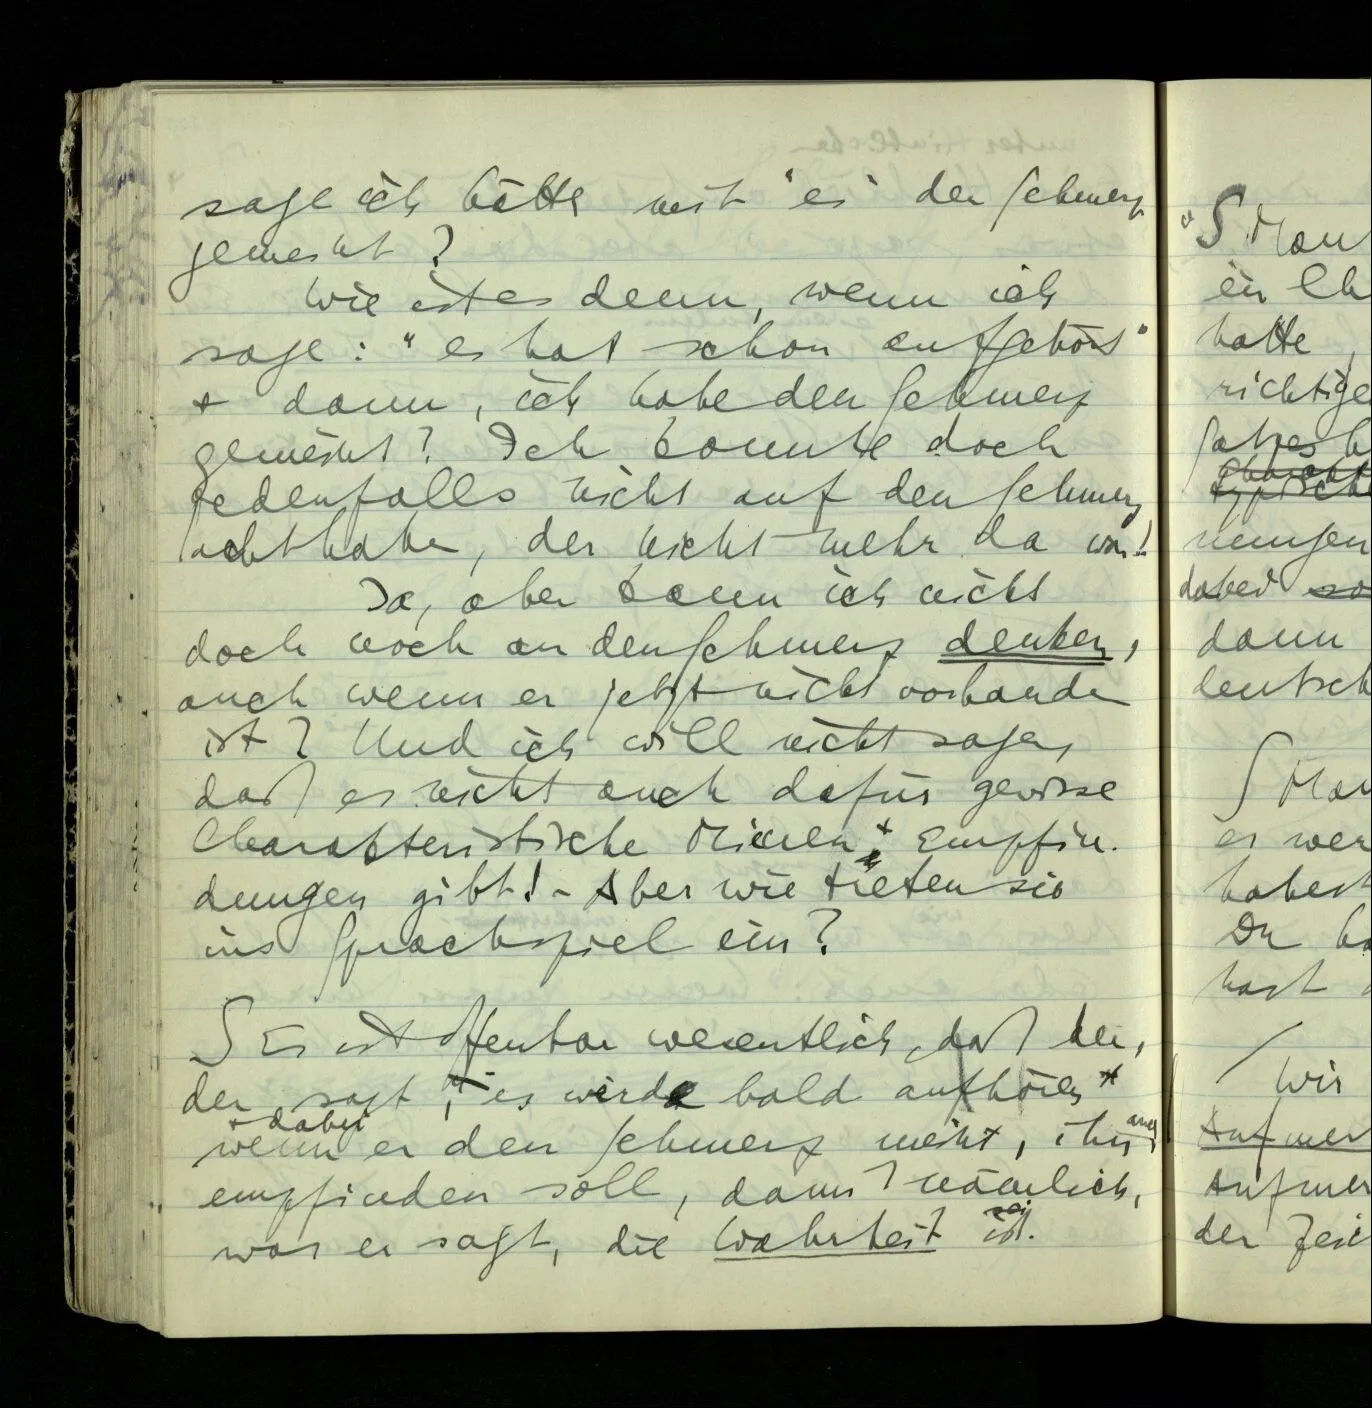 sage ich hätte mit "es" den Schmerz
gemeint?
Wie ist es denn, wenn ich
sage: "es hat schon aufgehört"
+ dann, ich habe den Schmerz
gemeint? Ich konnte doch
jedenfalls nicht auf den Schmerz
achthaben, der nicht mehr da war!
Ja, aber kann ich nicht
doch noch an den Schmerz denken,
auch wenn er jetzt nicht vorhanden
ist? Und ich will nicht sagen,
daß es nicht auch dafür gewisse
Charakteristische Mienen + Empfin-
dungen gibt! - Aber wie treten sie
ins Sprachspiel ein?
∫ Es ist offenbar wesentlich, daß der,
der sagt, "es wird bald aufhören"
+ dabei
wenn er den Schmerz meint, ihn auch
empfinden soll, damit nämlich,
was er sagt, die Wahrheit ist.
sei
"∫ Man
ein
hatte
richtige
Satzes
dabei
dann
deutsch
∫ Man
er wer
habest
Du
hast
/ Wir
Aufmer
Aufmer
der Zeit